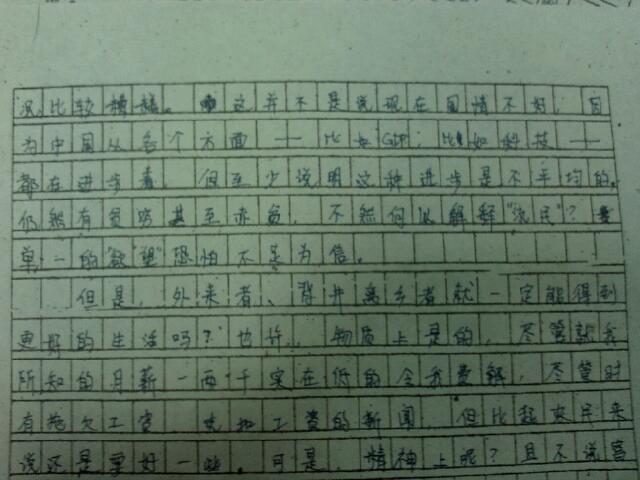 况比较糟糕。这并不是说现在国情不好，因
为中国从各个方面——比如GDP；比如科技——
都在进步着。但至少说明这种进步是不平均的。
仍然有贫穷甚至赤贫。不然何以解释“流民”？
单一的“欲望”恐怕不足为信。
但是，外来者、背井离乡者就一定能得到
更好的生活吗？也许，物质上是的，尽管就我
所知的月薪一两千实在低的令我费解，尽管时
有拖欠工资、克扣工资的新闻，但比起农民来
说还是要好一些。可是，精神上呢？且不说